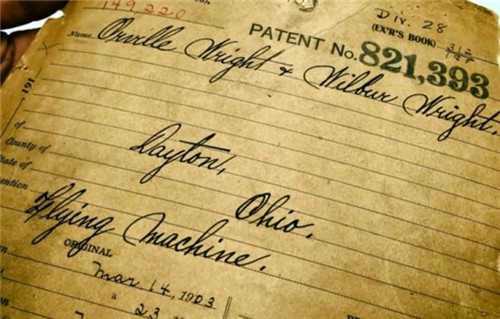 149220
Div. 28
(EX'R'S BOOK)
PATENT No. 821,393
Name, Orville Wright & Wilbur Wright
191
of Dayton,
County of
State of Ohio.
Invention Flying Machine.
ORIGINAL
Mar 14, 1903
" 23